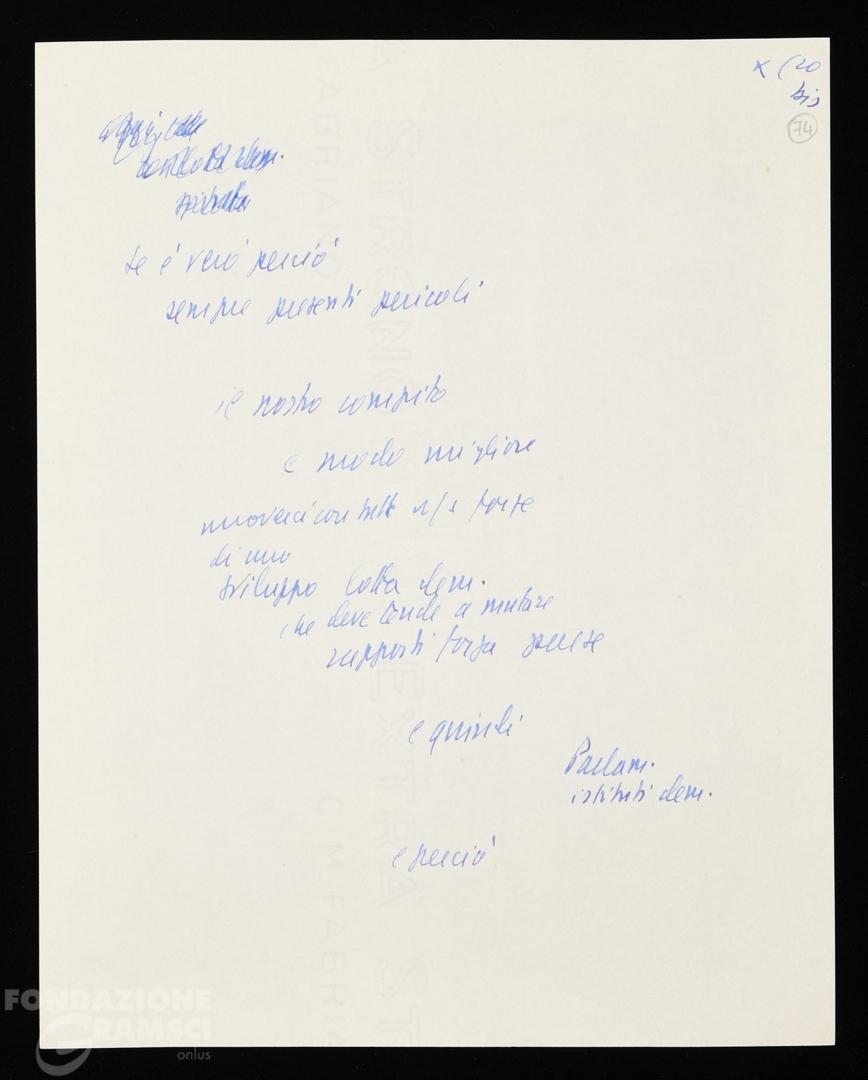 x (20
bis
74
se è vero perciò
sempre presenti pericoli
il nostro compito
e modo migliore
muoverci con tutte n/s forze
di uno
sviluppo lotta dem.
che deve tende a mutare
rapporti forza paese
e quindi
Parlam.
istituti dem.
e perciò
FONDAZIONE
GRAMSCI
onlus
A STRONG EXTRA ST
FABRIANO
M FABRI